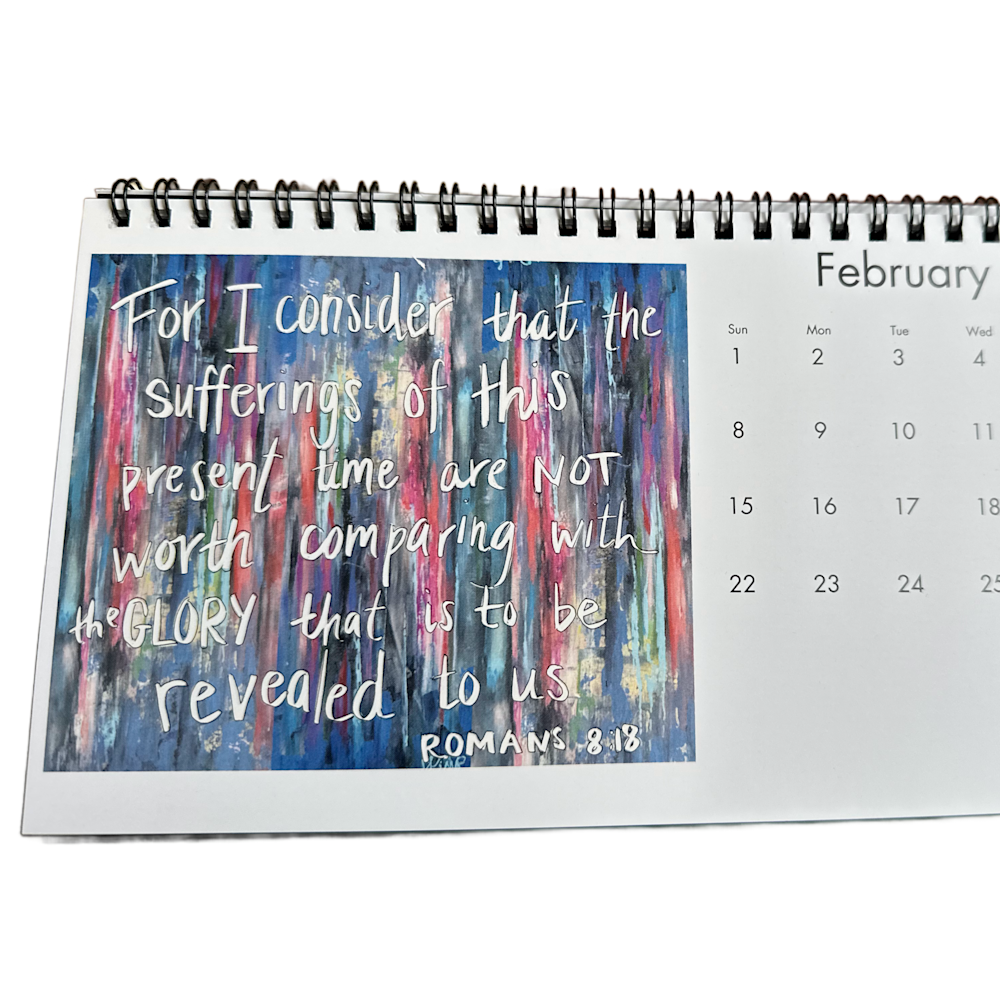 For I consider that the
sufferings of this
present time are NOT
worth comparing with
the GLORY that is to be
revealed to us.
ROMANS 8:18
February
Sun Mon Tue Wed
1 2 3 4
8 9 10 11
15 16 17 18
22 23 24 25